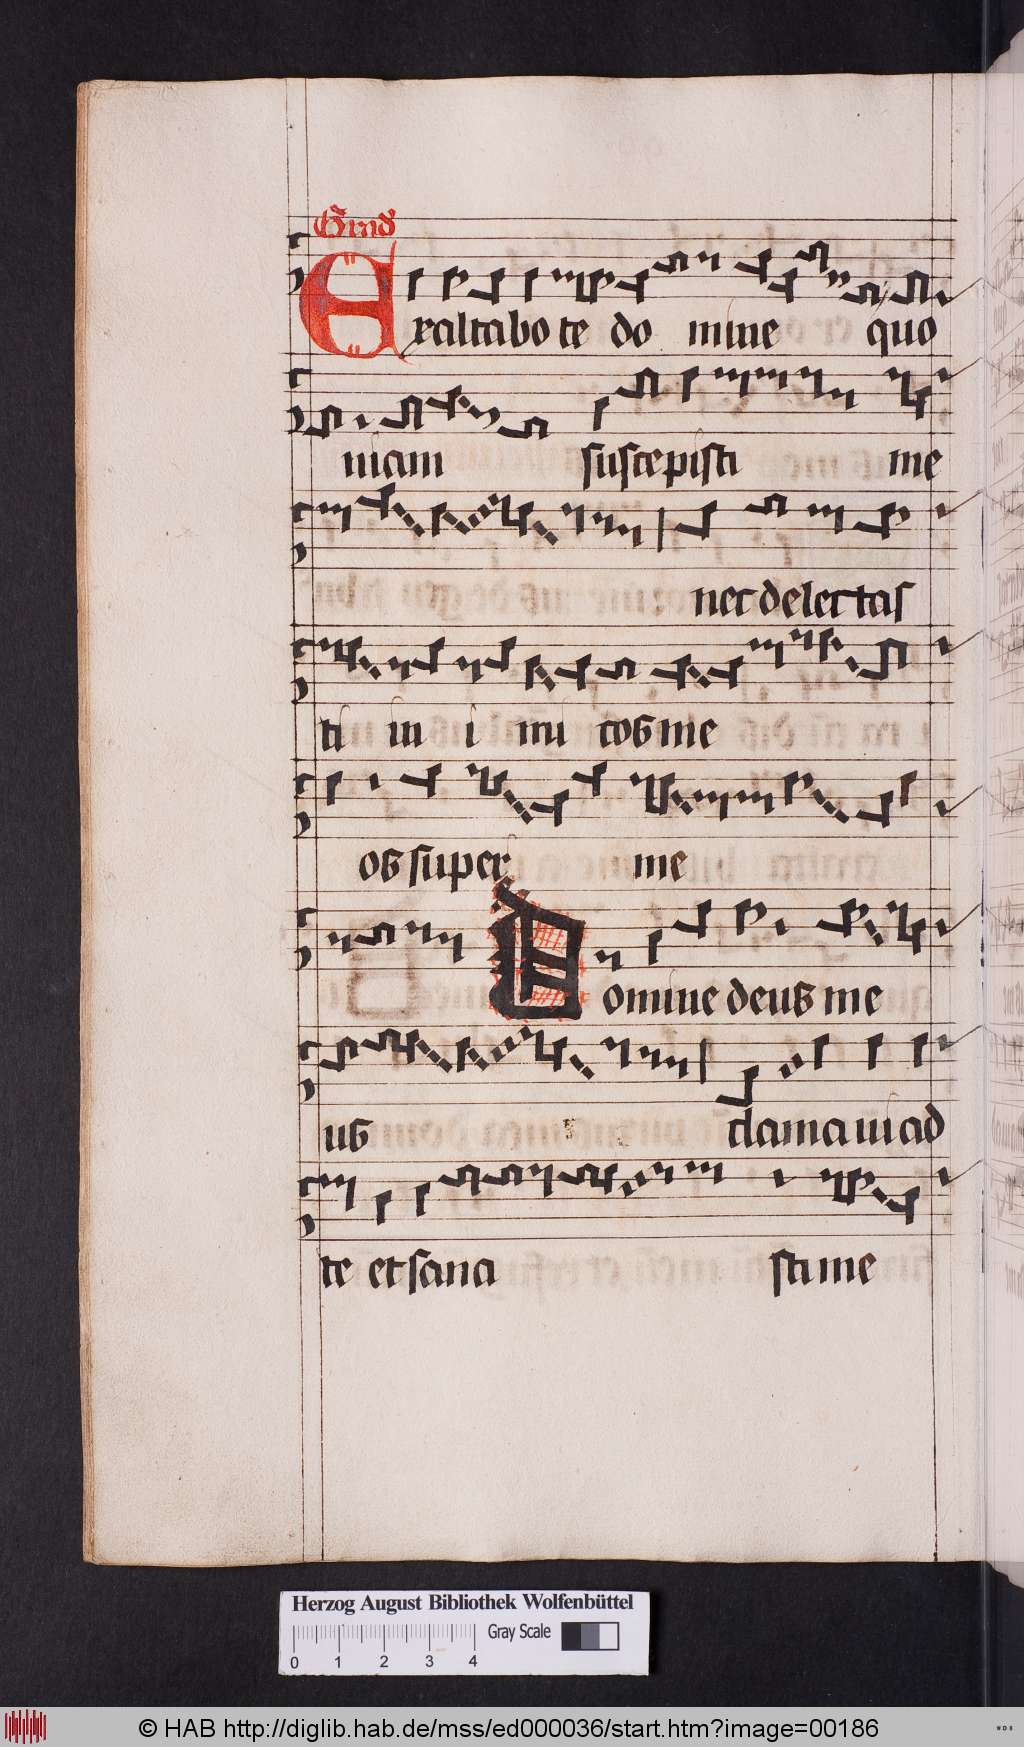 Exaltabo te do mine quo
niam suscepisti me
nec delectas
ti in i mi cos me
os super me
Domine deus me
us clamaui ad
te et sana sti me
Herzog August Bibliothek Wolfenbüttel
Gray Scale
0 1 2 3 4
© HAB http://diglib.hab.de/mss/ed000036/start.htm?image=00186